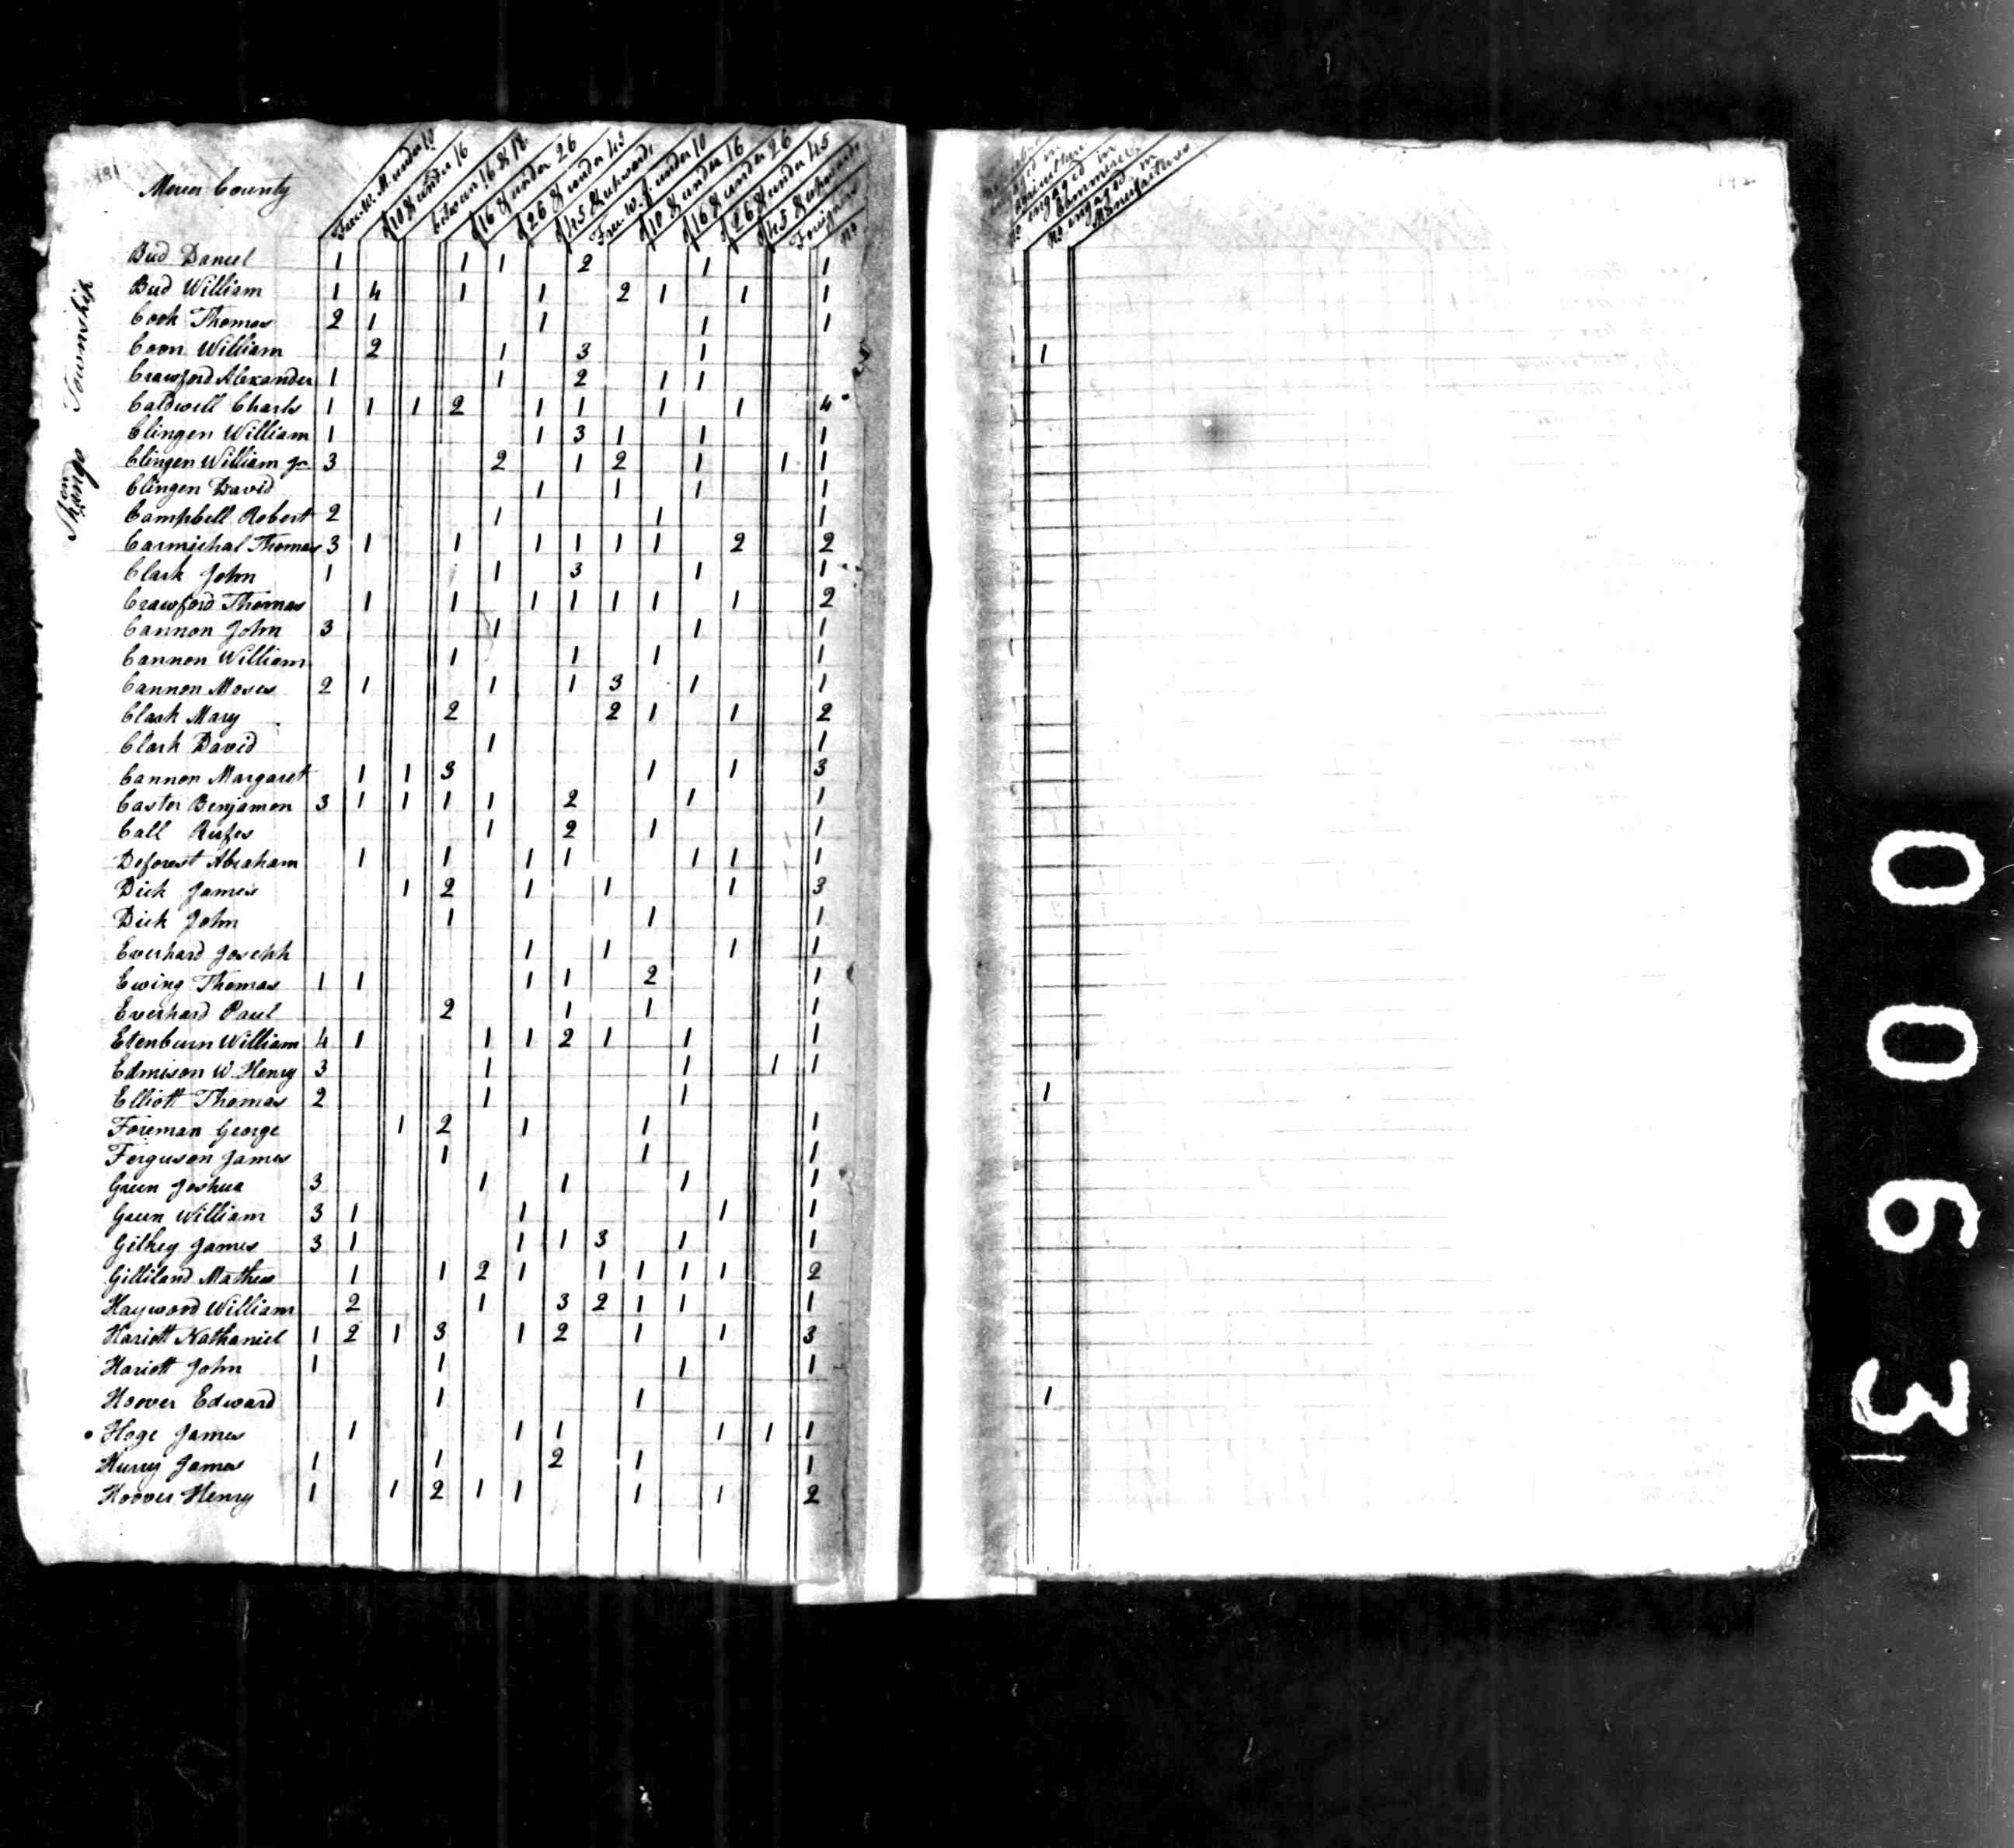 181
Mercer County
Free W. M. under 10
of 10 & under 16
between 16 & 18
of 16 & under 26
of 26 & under 45
of 45 & upward,
Free W. f. under 10
of 10 & under 16
of 16 & under 26
of 26 & under 45
of 45 & upwards
Foreigners
No
engaged in Commerce,
No engaged in Manufactures
Shenango Township
Bud Daniel 1 1 1 2 1 1
Bud William 1 4 1 1 2 1 1 1
Cook Thomas 2 1 1 1 1
Coon William 2 1 3 1 1
Crawford Alexander 1 1 2 1 1
Caldwell Charls 1 1 1 2 1 1 1 1 4
Clingen William 1 1 3 1 1 1
Clingen William Jr 3 2 1 2 1 1 1
Clingen David 1 1 1 1
Campbell Robert 2 1 1 1
Carmichal Thomas 3 1 1 1 1 1 1 2 2
Clark John 1 1 3 1 1
Crawford Thomas 1 1 1 1 1 1 1 2
Cannon John 3 1 1 1
Cannon William 1 1 1 1
Cannon Moses 2 1 1 1 3 1 1
Clark Mary 2 2 1 1 2
Clark David 1 1
Cannon Margaret 1 1 3 1 1 3
Caster Benjamen 3 1 1 1 1 2 1 1
Call Rufes 1 2 1 1
Deforest Abraham 1 1 1 1 1 1 1
Dick James 1 2 1 1 1 3
Dick John 1 1 1
Everhard Joseph 1 1 1 1
Ewing Thomas 1 1 1 1 2 1
Everhard Paul 2 1 1 1
Etenburn William 4 1 1 1 2 1 1 1
Edmison W. Henry 3 1 1 1 1
Elliott Thomas 2 1 1 1
Foreman George 1 2 1 1 1
Ferguson James 1 1 1
Green Joshua 3 1 1 1 1
Green William 3 1 1 1 1
Gilkey James 3 1 1 1 3 1 1
Gilliland Mathew 1 1 2 1 1 1 1 1 2
Hayword William 2 1 3 2 1 1 1
Hariott Nathaniel 1 2 1 3 1 2 1 1 3
Hariott John 1 1 1 1
Hoover Edward 1 1 1
Hoge James 1 1 1 1 1 1
Hurry James 1 1 2 1 1
Hoover Henry 1 1 2 1 1 1 1 2
0063